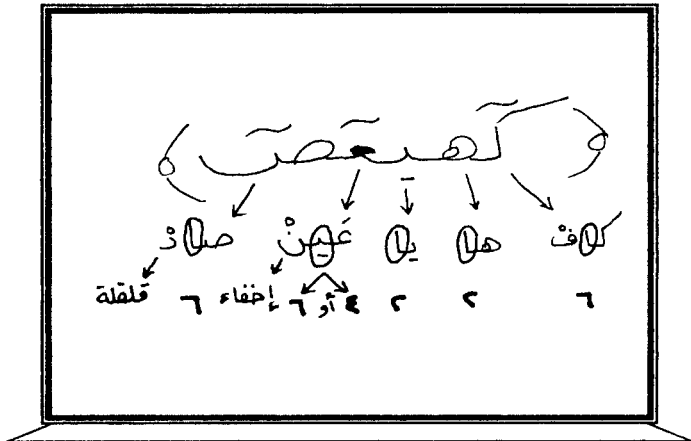 ﴿ كٓهيعٓصٓ ﴾
كافْ هَا يَا عَيِنْ صادْ
٦ ٢ ٢ ٤ أو ٦ إخفاء ٦ قلقلة